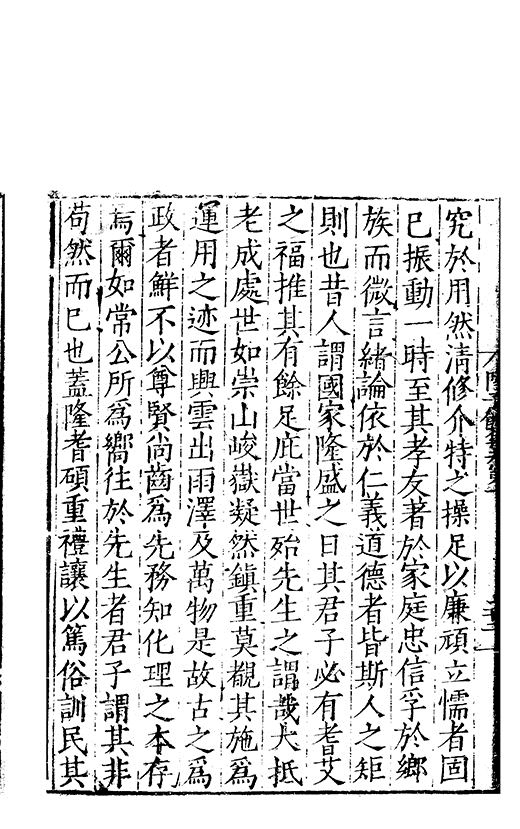 究於用然淸修介特之操足以廉頑立懦者固
已振動一時至其孝友著於家庭忠信孚於鄉
族而微言緒論依於仁義道德者皆斯人之矩
則也昔人謂國家隆盛之日其君子必有耆艾
之福推其有餘足庇當世殆先生之謂哉大抵
老成處世如崇山峻嶽凝然鎭重莫覩其施爲
運用之迹而興雲出雨澤及萬物是故古之爲
政者鮮不以尊賢尚齒爲先務知化理之本存
焉爾如常公所爲嚮往於先生者君子謂其非
苟然而已也蓋隆耆碩重禮讓以篤俗訓民其